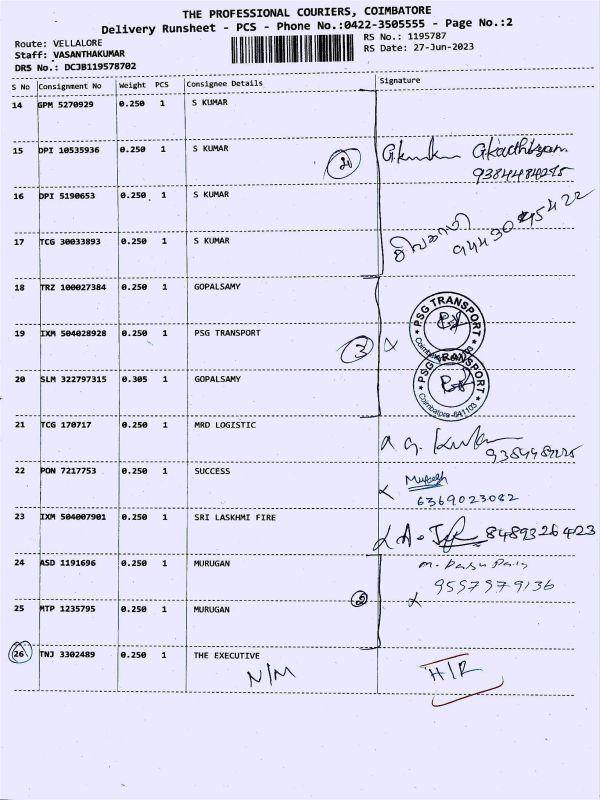 THE PROFESSIONAL COURIERS, COIMBATORE
Delivery Runsheet - PCS - Phone No.:0422-3505555 - Page No.:2
Route: VELLALORE
RS No.: 1195787
Staff: VASANTHAKUMAR
RS Date: 27-Jun-2023
DRS No.: DCJB119578702
S No Consignment No Weight PCS Consignee Details Signature
14 GPM 5270929 0.250 1 S KUMAR
15 DPI 10535936 0.250 1 S KUMAR
4
9384484295
16 DPI 5190653 0.250 1 S KUMAR
17 TCG 30033893 0.250 1 S KUMAR
18 TRZ 100027384 0.250 1 GOPALSAMY
PSG TRANSPORT
19 IXM 504028928 0.250 1 PSG TRANSPORT
3
20 SLM 322797315 0.305 1 GOPALSAMY
PSG TRANSPORT
Coimbatore-641103
21 TCG 170717 0.250 1 MRD LOGISTIC
22 PON 7217753 0.250 1 SUCCESS
Mukesh
6369023082
23 IXM 504007901 0.250 1 SRI LASKHMI FIRE
8489326423
24 ASD 1191696 0.250 1 MURUGAN
9597979136
2
25 MTP 1235795 0.250 1 MURUGAN
26 TNJ 3302489 0.250 1 THE EXECUTIVE
N/M H/R